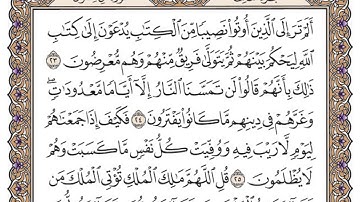 أَلَمْ تَرَ إِلَى ٱلَّذِينَ أُوتُوا۟ نَصِيبًا مِّنَ ٱلْكِتَٰبِ يُدْعَوْنَ إِلَىٰ كِتَٰبِ
ٱللَّهِ لِيَحْكُمَ بَيْنَهُمْ ثُمَّ يَتَوَلَّىٰ فَرِيقٌ مِّنْهُمْ وَهُم مُّعْرِضُونَ ٢٣
ذَٰلِكَ بِأَنَّهُمْ قَالُوا۟ لَن تَمَسَّنَا ٱلنَّارُ إِلَّآ أَيَّامًا مَّعْدُودَٰتٍ ۖ
وَغَرَّهُمْ فِى دِينِهِم مَّا كَانُوا۟ يَفْتَرُونَ ٢٤ فَكَيْفَ إِذَا جَمَعْنَٰهُمْ
لِيَوْمٍ لَّا رَيْبَ فِيهِ وَوُفِّيَتْ كُلُّ نَفْسٍ مَّا كَسَبَتْ وَهُمْ
لَا يُظْلَمُونَ ٢٥ قُلِ ٱللَّهُمَّ مَٰلِكَ ٱلْمُلْكِ تُؤْتِى ٱلْمُلْكَ مَن